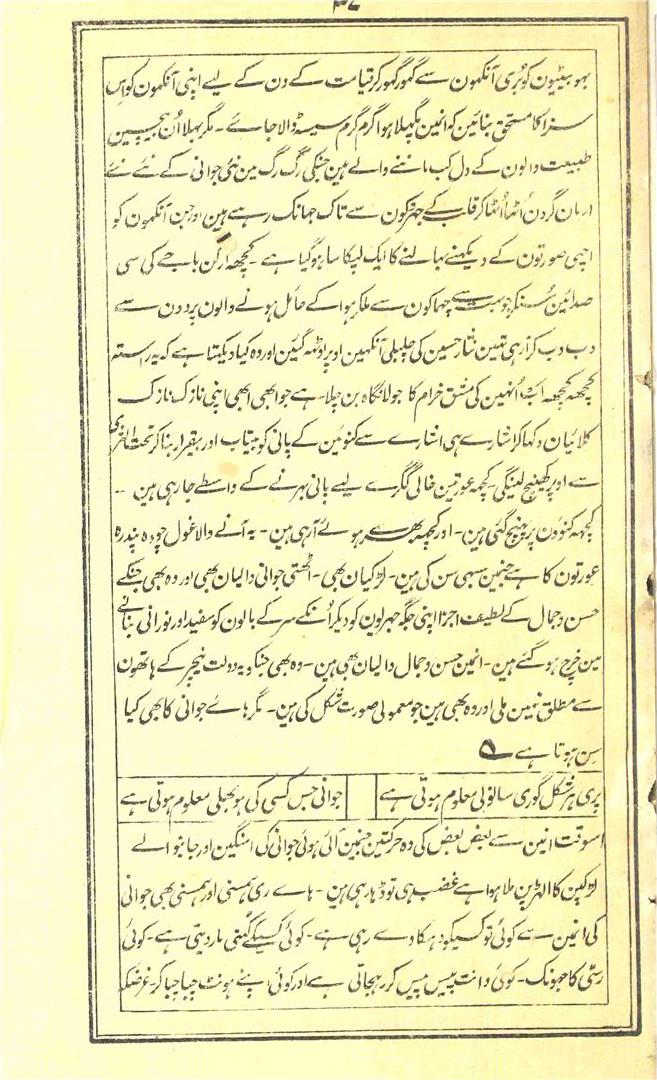 ۳۷
بہو بیٹیون کو بُری آنکھون سے گھور گھور کر قیامت کے دن کے لیے اپنی آنکھون کو اِس
سزا کا مستحق بنائین کہ انمین پگھلا ہوا گرم گرم سیسہ ڈالا جائے ۔ مگر بھلا اُن بیچین
طبیعت والون کے دل کب ماننے والے ہین جنکی رگ رگ مین نئی جوانی کے نئے نئے
ارمان گردن اُٹھا اُٹھا کر قلب کے جھڑکون سے تاک جھانک رہے ہین اور جن آنکھون کو
اچھی صورتون کے دیکھنے بھالنے کا ایک لپکا سا ہو گیا ہے ۔ کچھ ارگن باجے کی سی
صدائین سُنکر جو بہت سے جھاکون سے ملکر ہوا کے حائل ہونے والون پردون سے
دب دب کر آرہی تہین نثار حسین کی چلبلی آنکھین اوپر اوٹھ گئین اور وہ کیا دیکھتا ہے کہ یہ راستہ
کچھ کچھ اب اُنہین کی مشق خرام کا جولانگاہ بن چلا ہے جو ابھی ابھی اپنی نازک نازک
کلائیان دکھا کر اشارے ہی اشارے سے کنوئین کے پانی کو بیتاب اور بیقرار بنا کر تحت الثریٰ
سے اوپر کھینچ لینگی ۔ کچھ عورتین خالی گگرے لیے پانی بھرنے کے واسطے جا رہی ہین ۔۔
کچھ کنوؤن پر پہنچ گئی ہین ۔ اور کچھ بھرے ہوئے آرہی ہین ۔ یہ آنے والا غول چودہ پندرہ
عورتون کا ہے جنمین سبہی سن کی ہین ۔ لڑکیان بھی ۔ اُٹھتی جوانی والیان بھی اور وہ بھی جنکے
حسن و جمال کے لطیف اجزا اپنی جگہ جھریون کو دیکر اُنکے سر کے بالون کو سفید اور نورانی بنانے
مین خرچ ہو گئے ہین ۔ انمین حسن و جمال والیان بھی ہین ۔ وہ بھی جنکو یہ دولت نیچر کے ہاتھون
سے مطلق نہین ملی اور وہ بھی ہین جو معمولی صورت شکل کی ہین ۔ مگر ہائے جوانی کا بھی کیا
سِن ہوتا ہے ؎
پری ہر شکل گوری سانولی معلوم ہوتی ہے جوانی جس کسی کی ہو بھلی معلوم ہوتی ہے
اسوقت انین سے بعض بعض کی وہ حرکتین جنمین آئی ہوئی جوانی کی امنگین اور جانیوالے
لڑکپن کا الہڑپن ملا ہوا ہے غضب ہی توڈھا رہی ہین ۔ ہائے ری ہنسی اور ہنسی بھی جوانی
کی انمین سے کوئی تو کسیکو دھکا دے رہی ہے ۔ کوئی کسیکے کُہنی مار دیتی ہے ۔ کوئی
رسّی کا جھونک ۔ کوئی دانت پیس پیس کر رہجاتی ہے اور کوئی اپنے ہونٹ چبا چبا کر ۔ غرضکہ